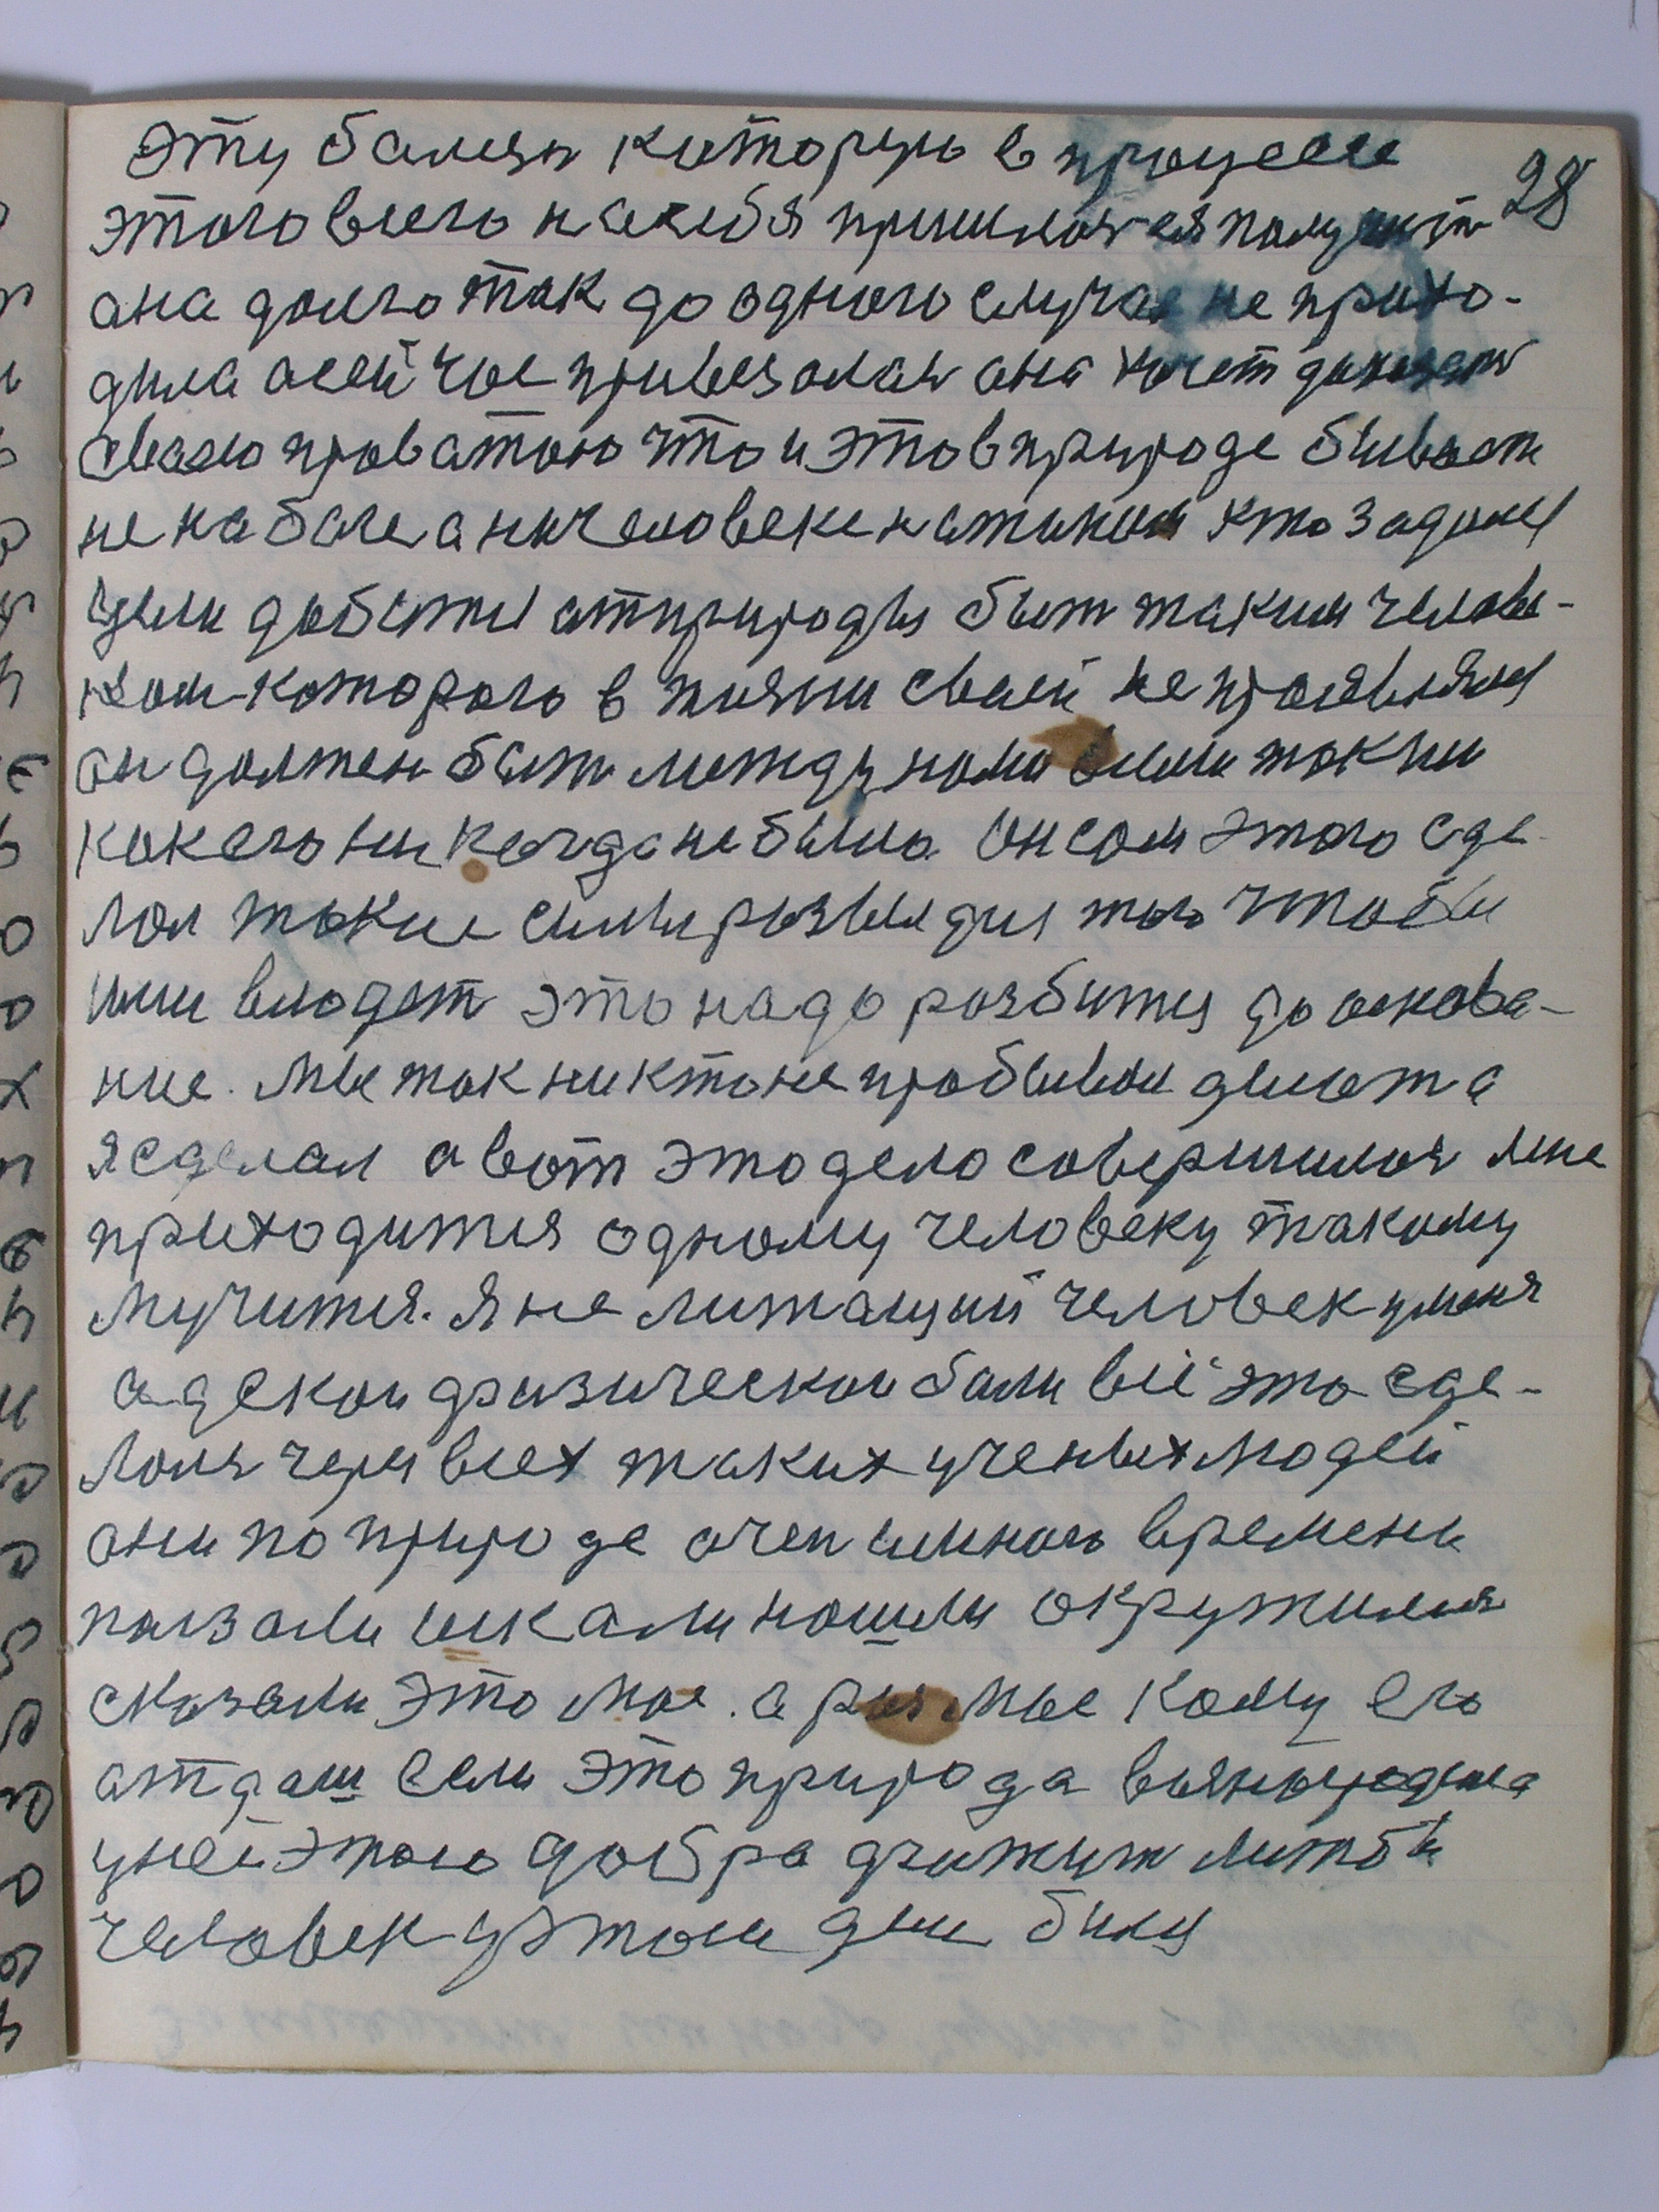 28
эту балезн которую в процессе
этого всего на себя пришлося получит
ана долго так до одного случая не прихо-
дила а сей час привезалась ана хочет доказат
своею праватою что и это в природе бывает
не на боге а на человеке на таким хто задался
цели добится ат природы быт таким челове-
ком которого в жизни своей не проявлялся
он должен быт между нами всими таким
какого ни когда не было. Он сам этого сде-
лал такие силы развил для того чтобы
ими владет это надо разбится до аснова-
ние. Мы так никто не пробывал делат а
я сделал а вот это дело совершилось мне
приходится одному человеку такому
мучится. Я не лижащий человек у меня
адской физической боли всё это сде-
лалось через всех таких ученых людей
они по природе очен много времени
ползали искали нашли окружилися
сказали это мое. а разве мые кому его
атдаш если это природа
у ней этого добра држжут литбы
человек у этом деле был